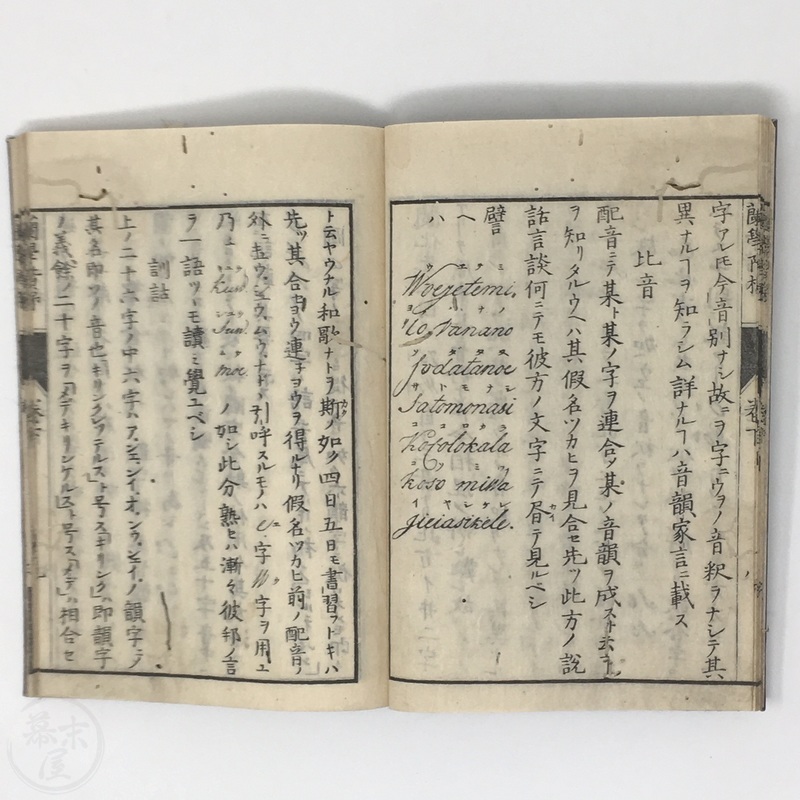 蘭學階梯
卷下
字アレ𪜈今音別ナシ故ニヲ字ニウヲノ音釈ヲナシテ其
異ナルヿヲ知ラシム詳ナルヿハ音韻家言ニ載ス
比音
配音ニテ某ト某ノ字ヲ連合メ某ノ音韻ヲ成スト云
ヲ知リタルウヘハ其假名ツカヒヲ見合セ先ツ此方ノ説
話言談何ニテモ彼方ノ文字ニテ㫺テ見ルベシ
譬ヘハ
ウエヱテミ
Woejetemi,
ヨ タナノ
Yo tanano
Jodatanoe
サトモナシ
Satomonasi
コヽロカラ
Kokolokala
コソ ミワ
koso miwa
イヤシケレ
Jieiasikele.
ト云ヤウナル和歌ナトヲ斯ノ如ク四日五日モ書習フトキハ
先ツ其合ヨウ連子ヨウヲ得ルナリ假名ツカヒ前ノ配音ノ
外ニウ、シユウ、ムウ、ナド、引呼スルモノハ U字 W字ヲ用ユ
乃ユ Kuu Suu moe ノ如シ此分熟セハ漸々彼邦ノ言
ヲ一語ツヽモ讀ミ覺ユベシ
訓詁
上ノ二十六字ノ中六字ハア、エ、イ、オ、ウ、イ、ノ韻字ニテ
其名即ソノ音也「キリンクレッテルス」ト号ス「キリンク」ハ即韻字
ノ義餘ノ二十字ヲ「メデキリンケルス」ト号ス「メデ」ハ相合セ
幕末屋